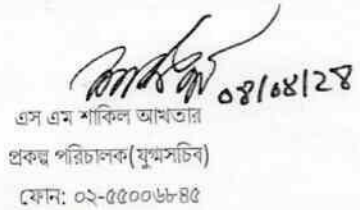 ০৪/০৪/২৪
এস এম শাকিল আখতার
প্রকল্প পরিচালক(যুগ্মসচিব)
ফোন: ০২-৫৫০০৬৮৪৫